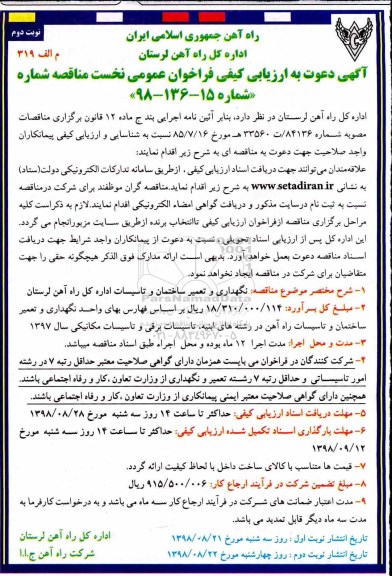 نوبت دوم
راه آهن جمهوری اسلامی ایران
اداره کل راه آهن لرستان
م الف ۳۱۹
آگهی دعوت به ارزیابی کیفی فراخوان عمومی نخست مناقصه شماره
«شماره ۱۵-۱۳۶-۹۸»
اداره کل راه آهن لرستان در نظر دارد، بنابر آئین نامه اجرایی بند ج ماده ۱۲ قانون برگزاری مناقصات
مصوبه شماره ۸۴۱۳۶/ت ۳۳۵۶۰ هـ مورخ ۸۵/۷/۱۶ نسبت به شناسایی و ارزیابی کیفی پیمانکاران
واجد صلاحیت جهت دعوت به مناقصه ای به شرح زیر اقدام نمایند:
علاقه‌مندان می‌توانند جهت دریافت اسناد ارزیابی کیفی ، ازطریق سامانه تدارکات الکترونیکی دولت(ستاد)
به نشانی www.setadiran.ir به شرح زیر اقدام نماید.مناقصه گران موظفند برای شرکت درمناقصه
نسبت به ثبت نام درسایت مذکور و دریافت گواهی امضاء الکترونیکی اقدام نمایند.لازم به ذکراست کلیه
مراحل برگزاری مناقصه ازفراخوان ارزیابی کیفی تاانتخاب برنده ازطریق سایت مزبورانجام می گردد.
این اداره کل پس از ارزیابی اسناد تحویلی، نسبت به دعوت از پیمانکاران واجد شرایط جهت دریافت
اسناد مناقصه دعوت بعمل خواهد آورد. بدیهی است ارائه مدارک فوق الذکر هیچگونه حقی را جهت
متقاضیان برای شرکت در مناقصه ایجاد نخواهد نمود.
۱- شرح مختصر موضوع مناقصه: نگهداری و تعمیر ساختمان و تاسیسات اداره کل راه آهن لرستان
۲- مبلغ کل برآورد: ۱۸/۳۱۰/۰۰۰/۱۱۴ ریال بر اساس فهارس بهای واحد نگهداری و تعمیر
ساختمان و تاسیسات راه آهن در رشته های ابنیه، تاسیسات برقی و تاسیسات مکانیکی سال ۱۳۹۷
۳- مدت و محل اجرا: مدت اجرا ۱۲ ماه بوده و محل اجراء طبق اسناد مناقصه میباشد.
۴- شرکت کنندگان در فراخوان می بایست همزمان دارای گواهی صلاحیت معتبر حداقل رتبه ۷ در رشته
امور تاسیساتی و حداقل رتبه ۷ رشته تعمیر و نگهداری از وزارت تعاون ،کار و رفاه اجتماعی باشند.
همچنین دارای گواهی صلاحیت معتبر ایمنی پیمانکاری از وزارت تعاون ،کار و رفاه اجتماعی باشند.
۵- مهلت دریافت اسناد ارزیابی کیفی: حداکثر تا ساعت ۱۴ روز سه شنبه مورخ ۱۳۹۸/۰۸/۲۸
۶- مهلت بارگذاری اسناد تکمیل شده ارزیابی کیفی: حداکثر تا ساعت ۱۴ روز سه شنبه مورخ
۱۳۹۸/۰۹/۱۲
۷- قیمت ها متناسب با کالای ساخت داخل با لحاظ کیفیت ارائه گردد.
۸- مبلغ تضمین شرکت در فرآیند ارجاع کار: ۹۱۵/۵۰۰/۰۰۶ ریال
۹- مدت اعتبار ضمانت های شرکت در فرآیند ارجاع کار سه ماه می باشد و به درخواست کارفرما به
مدت سه ماه دیگر قابل تمدید می باشد.
تاریخ انتشار نوبت اول : روز سه شنبه مورخ ۱۳۹۸/۰۸/۲۱
تاریخ انتشار نوبت دوم : روز چهارشنبه مورخ ۱۳۹۸/۰۸/۲۲
اداره کل راه آهن لرستان
شرکت راه آهن ج.ا.ا